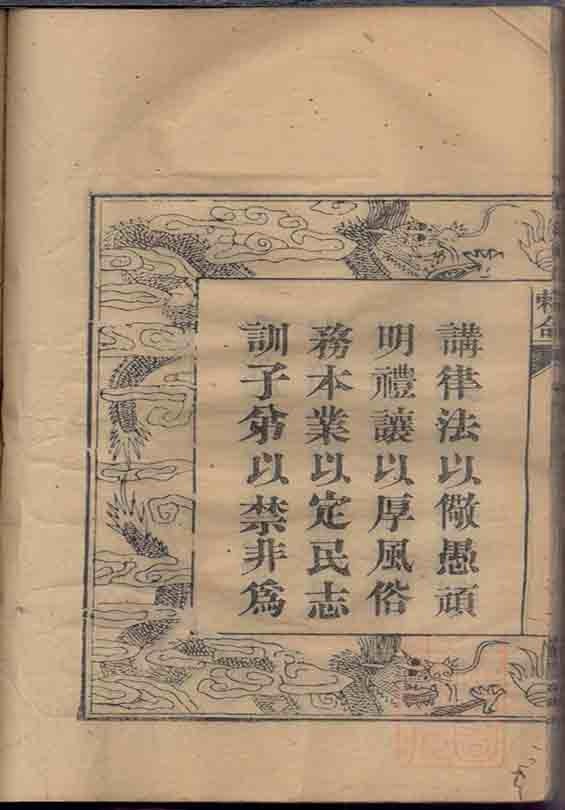 講律法以儆愚頑
明禮讓以厚風俗
務本業以定民志
訓子弟以禁非為